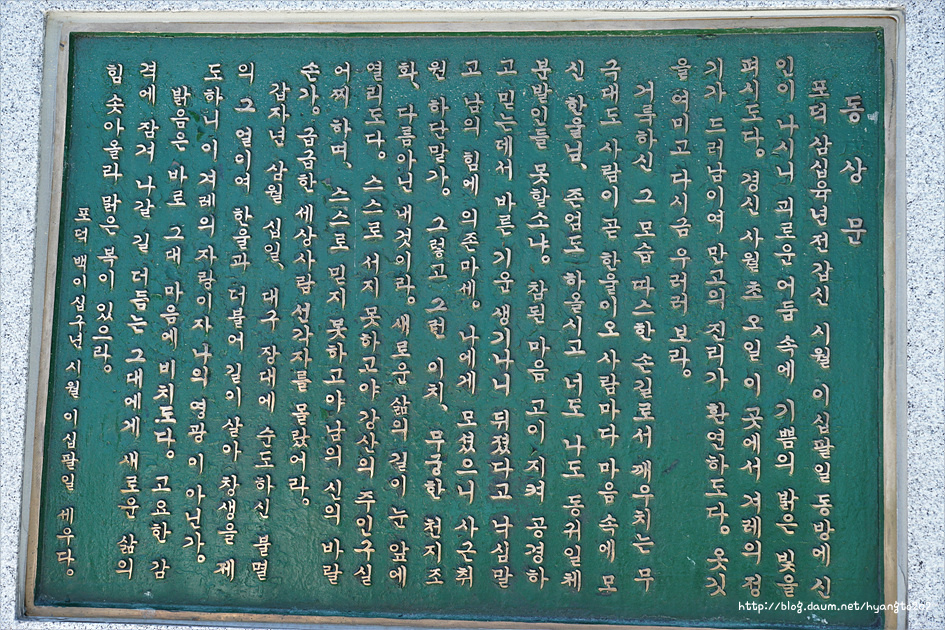 동상문
포덕 삼십육년전 갑신 시월 이십팔일 동방에 신
인이 나시니 괴로운 어둠 속에 기쁨의 밝은 빛을
펴시도다. 경신 사월 초오일 이 곳에서 겨레의 정
기가 드러남이여 만고의 진리가 환연하도다. 옷깃
을 여미고 다시금 우러러 보라.
거룩하신 그 모습 따스한 손길로서 깨우치는 무
극대도 사람이 곧 한울이오 사람마다 마음 속에 모
신 한울님. 존엄도 하올시고 너도 나도 동귀일체
분발인들 못할소냐. 참된 마음 고이 지켜 공경하
고 믿는데서 바른 기운 생기나니 뒤졌다고 낙심말
고 남의 힘에 의존마세. 나에게 모셨으니 사근취
원 하단말가. 그렇고 그런 이치, 무궁한 천지조
화, 다름아닌 내것이라. 새로운 삶의 길이 눈 앞에
열리도다. 스스로 서지 못하고야 강산의 주인구실
어찌 하며, 스스로 믿지 못하고야 남의 신의 바랄
손가. 굽굽한 세상사람 선각자를 몰랐어라.
갑자년 삼월 십일. 대구 장대에 순도하신 불멸
의 그 얼이여 한울과 더불어 길이 살아 창생을 제
도하니 이 겨레의 자랑이자 나의 영광이 아닌가.
밝음은 바로 그대 마음에 비치도다. 고요한 감
격에 잠겨 나갈 길 더듬는 그대에게 새로운 삶의
힘 솟아올라 맑은 복이 있으라.
포덕 백이십구년 시월 이십팔일 세우다.